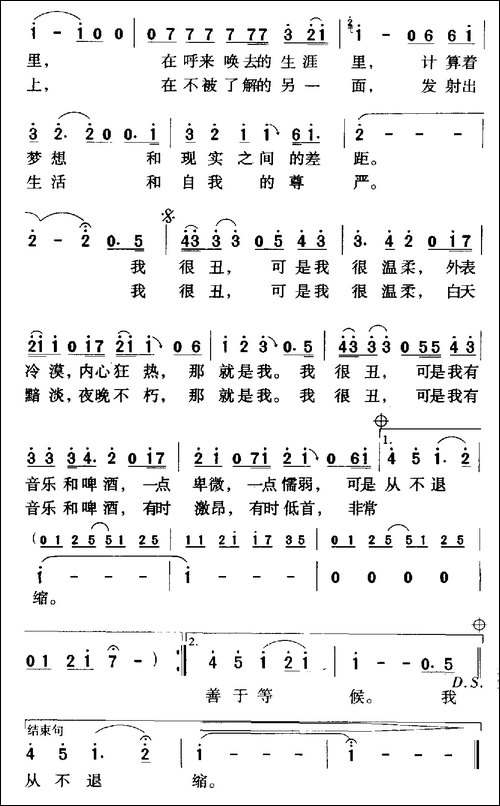 i - i 0 0 0 7 7 7 7 7 7 7 3 2 i i - 0 6 6 i
里， 在呼来唤去的生涯 里， 计算着
上， 在不被了解的另一 面， 发射出
3 2. 2 0 0. i 3 2 i i 6 i. 2 - - -
梦想 和现实之间的差 距。
生活 和自我 的尊 严。
2 - 2 0. 5 4 3 3 3 0 5 4 3 3. 4 2 0 i 7
我 很丑，可是我 很温柔，外表
我 很丑，可是我 很温柔，白天
2 i i 0 i 7 2 i i 0 6 i 2 3 0. 5 4 3 3 3 0 5 5 4 3
冷漠，内心狂热，那 就是我。我 很丑，可是我有
黯淡，夜晚不朽，那 就是我。我 很丑，可是我有
1.
3 3 3 4. 2 0 i 7 2 i 0 7 i i 0 6 i 4 5 i. 2
音乐和啤酒，一点 卑微，一点懦弱，可是 从不退
音乐和啤酒，有时 激昂，有时低首，非常
( 0 1 2 5 5 1 2 5 1 1 2 1 i 7 3 5 0 1 2 5 5 1 2 5
i - - - i - - - 0 0 0 0
缩。
2.
0 1 2 i 7 - ) 4 5 i 2 i i - - 0. 5
善于等 候。 我
D.S.
结束句
4 5 i. 2 i - - - i - - -
从不退 缩。